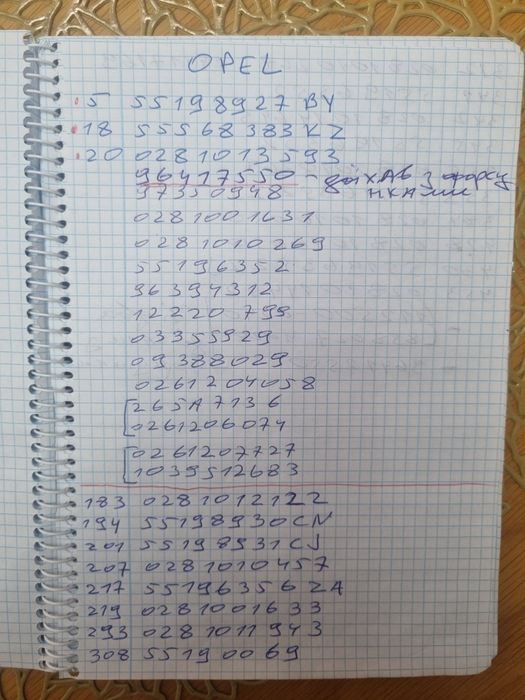 OPEL
5 55198927 BY
18 55568383 KZ
20 0281013593
96417550 - з форсу
нками
97350948
0281001631
0281010269
55196352
96394312
12220 799
03355929
09388029
0261204058
265A7136
0261206074
0261207727
1039S12683
183 0281012122
194 55198930CN
201 55198931CJ
207 0281010457
217 55196356ZA
219 0281001633
293 0281011943
308 55190069